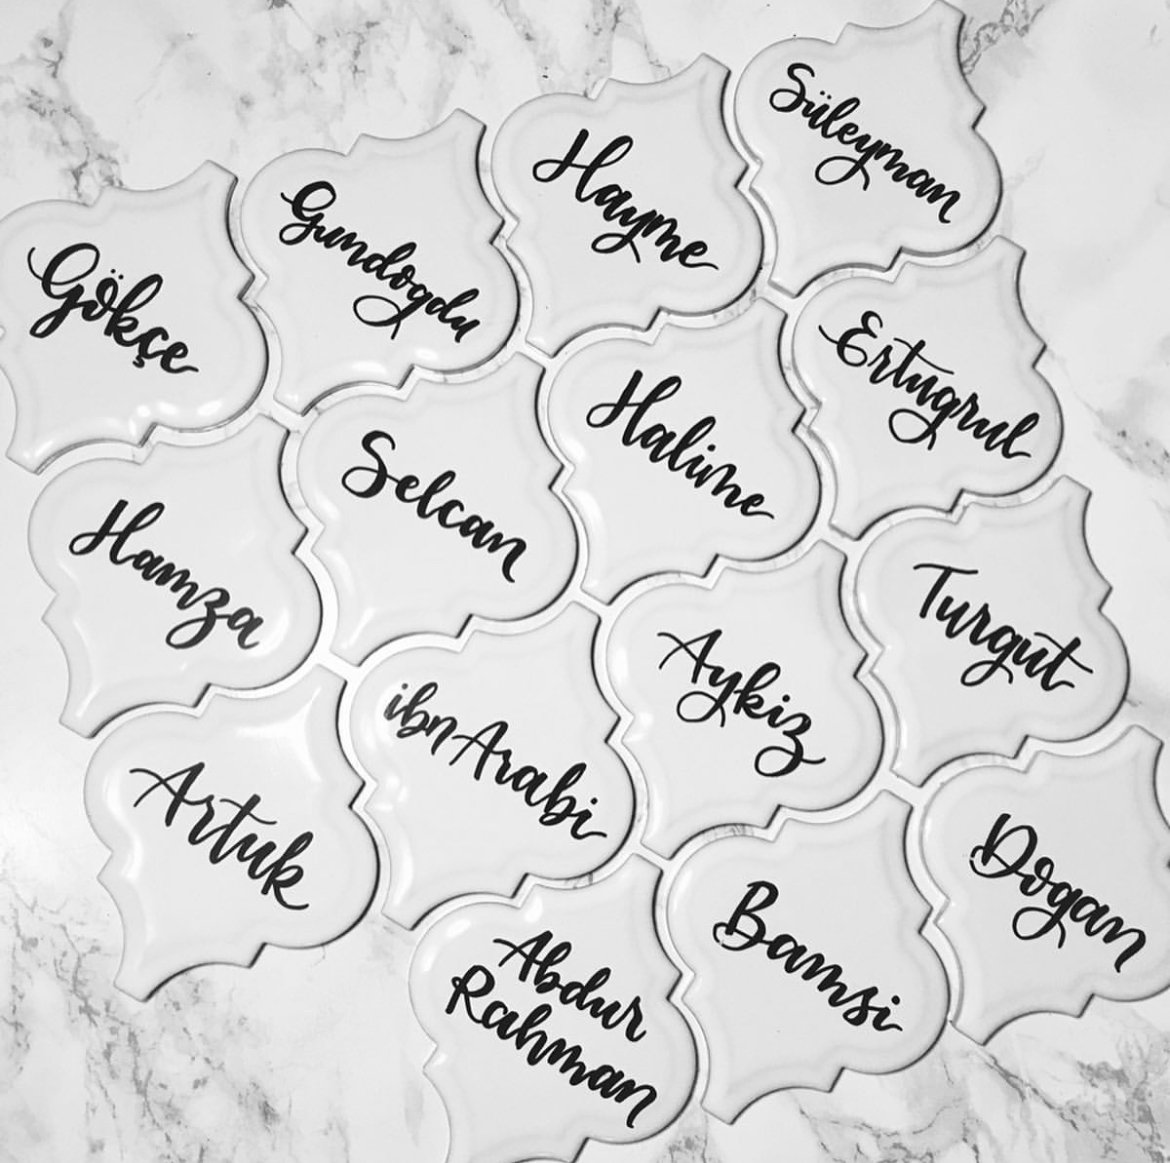 Süleyman
Hayme
Gundogdu
Gökçe
Ertugrul
Halime
Selcan
Hamza
Turgut
Aykiz
ibn Arabi
Artuk
Dogan
Bamsi
Abdur
Rahman